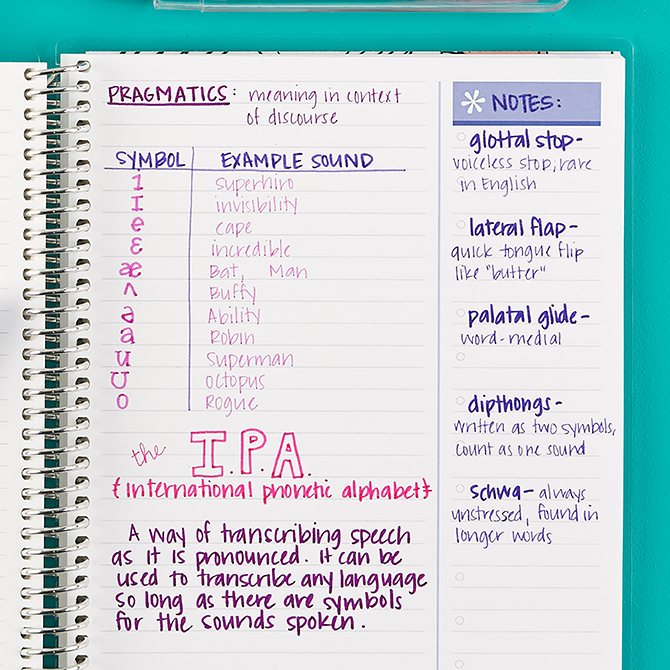 PRAGMATICS: meaning in context
of discourse
SYMBOL EXAMPLE SOUND
1 superhiro
I invisibility
e cape
ɛ incredible
æ Bat, Man
ʌ Buffy
ə Ability
a Robin
u Superman
ʊ octopus
o Rogue
the I.P.A.
{International phonetic alphabet}
A way of transcribing speech
as it is pronounced. It can be
used to transcribe any language
so long as there are symbols
for the sounds spoken.
* NOTES:
glottal stop-
voiceless stop, rare
in English
lateral flap-
quick tongue flip
like "butter"
palatal glide-
word-medial
dipthongs-
written as two symbols,
count as one sound
schwa- always
unstressed, found in
longer words